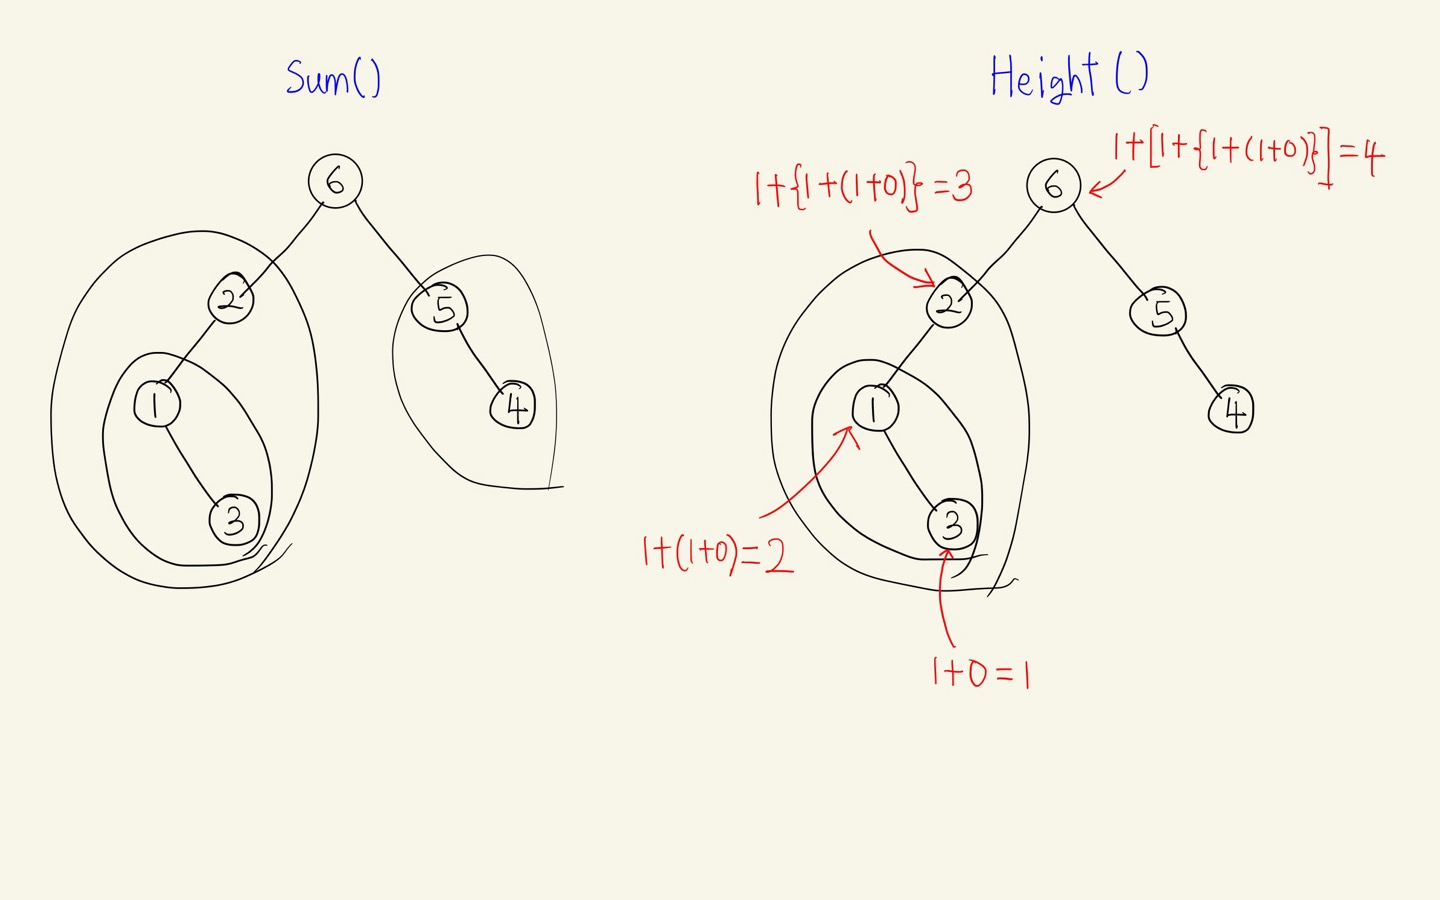 Sum()
6
2
5
1
4
3
Height()
1+[1+{1+(1+0)}]=4
1+{1+(1+0)}=3
6
2
5
1
4
3
1+(1+0)=2
1+0=1